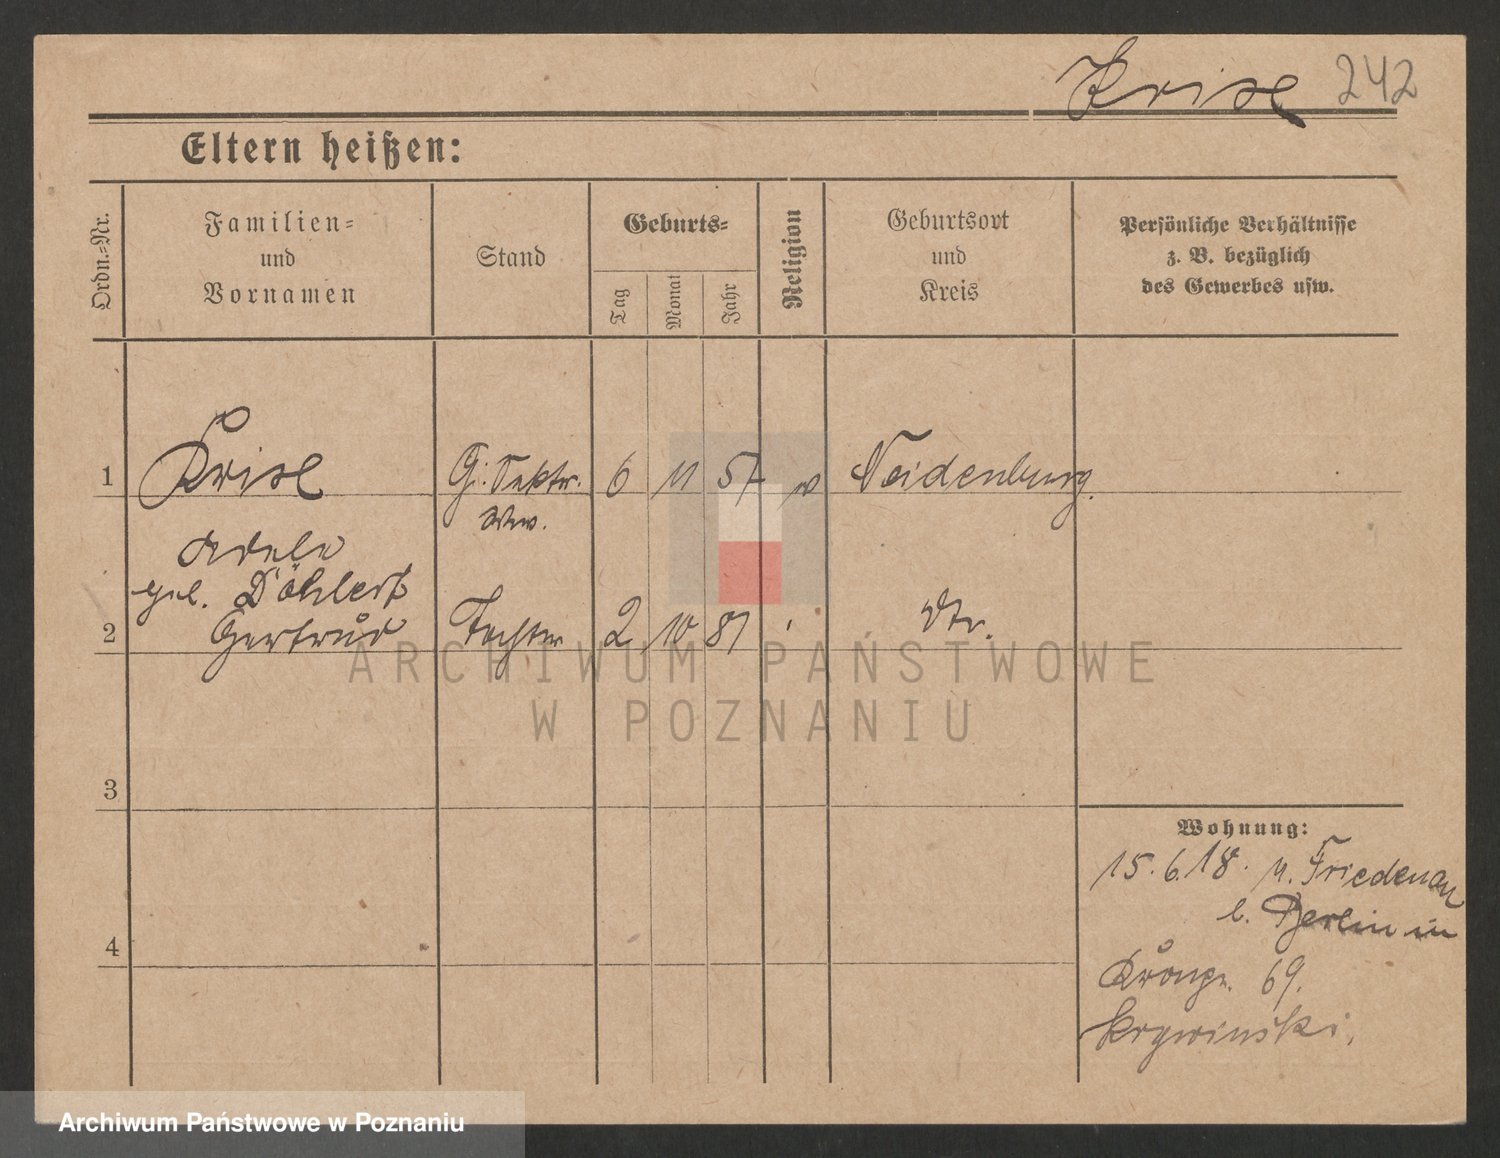 Krise 242
Eltern heißen:
Ordn.=Nr.
Familien=
und
Vornamen
Stand
Geburts=
Tag
Monat
Jahr
Religion
Geburtsort
und
Kreis
Persönliche Verhältnisse
z. B. bezüglich
des Gewerbes usw.
1 Krise 6 11 57 Neidenburg.
Www.
Adele
geb. Döhlert
2 Gertrud Tochter 2 10 87
3
4
Wohnung:
15.6.18. n. Friedenau
b. Berlin in
Kronpr. 69.
Krywinski.
ARCHIWUM PAŃSTWOWE
W POZNANIU
Archiwum Państwowe w Poznaniu